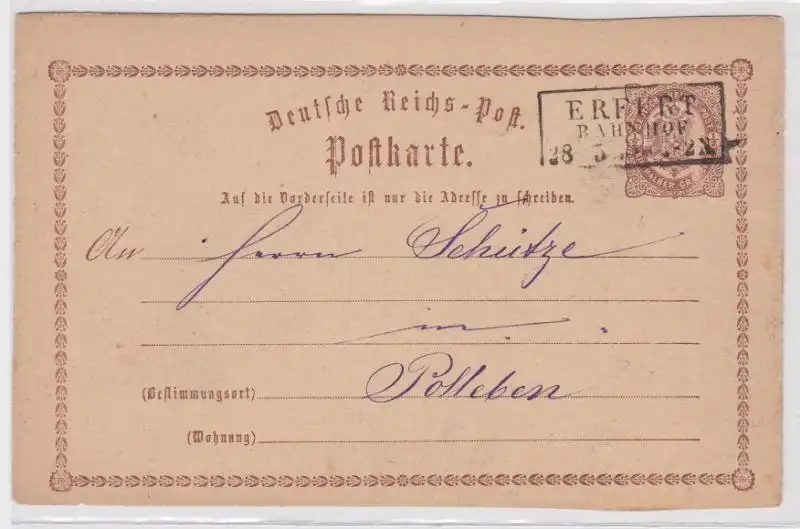 Deutsche Reichs-Post.
Postkarte.
ERFURT
BAHNHOF
28 5
Auf die Vorderseite ist nur die Adresse zu schreiben.
An Herrn Schütze
in
(Bestimmungsort) Polleben
(Wohnung)